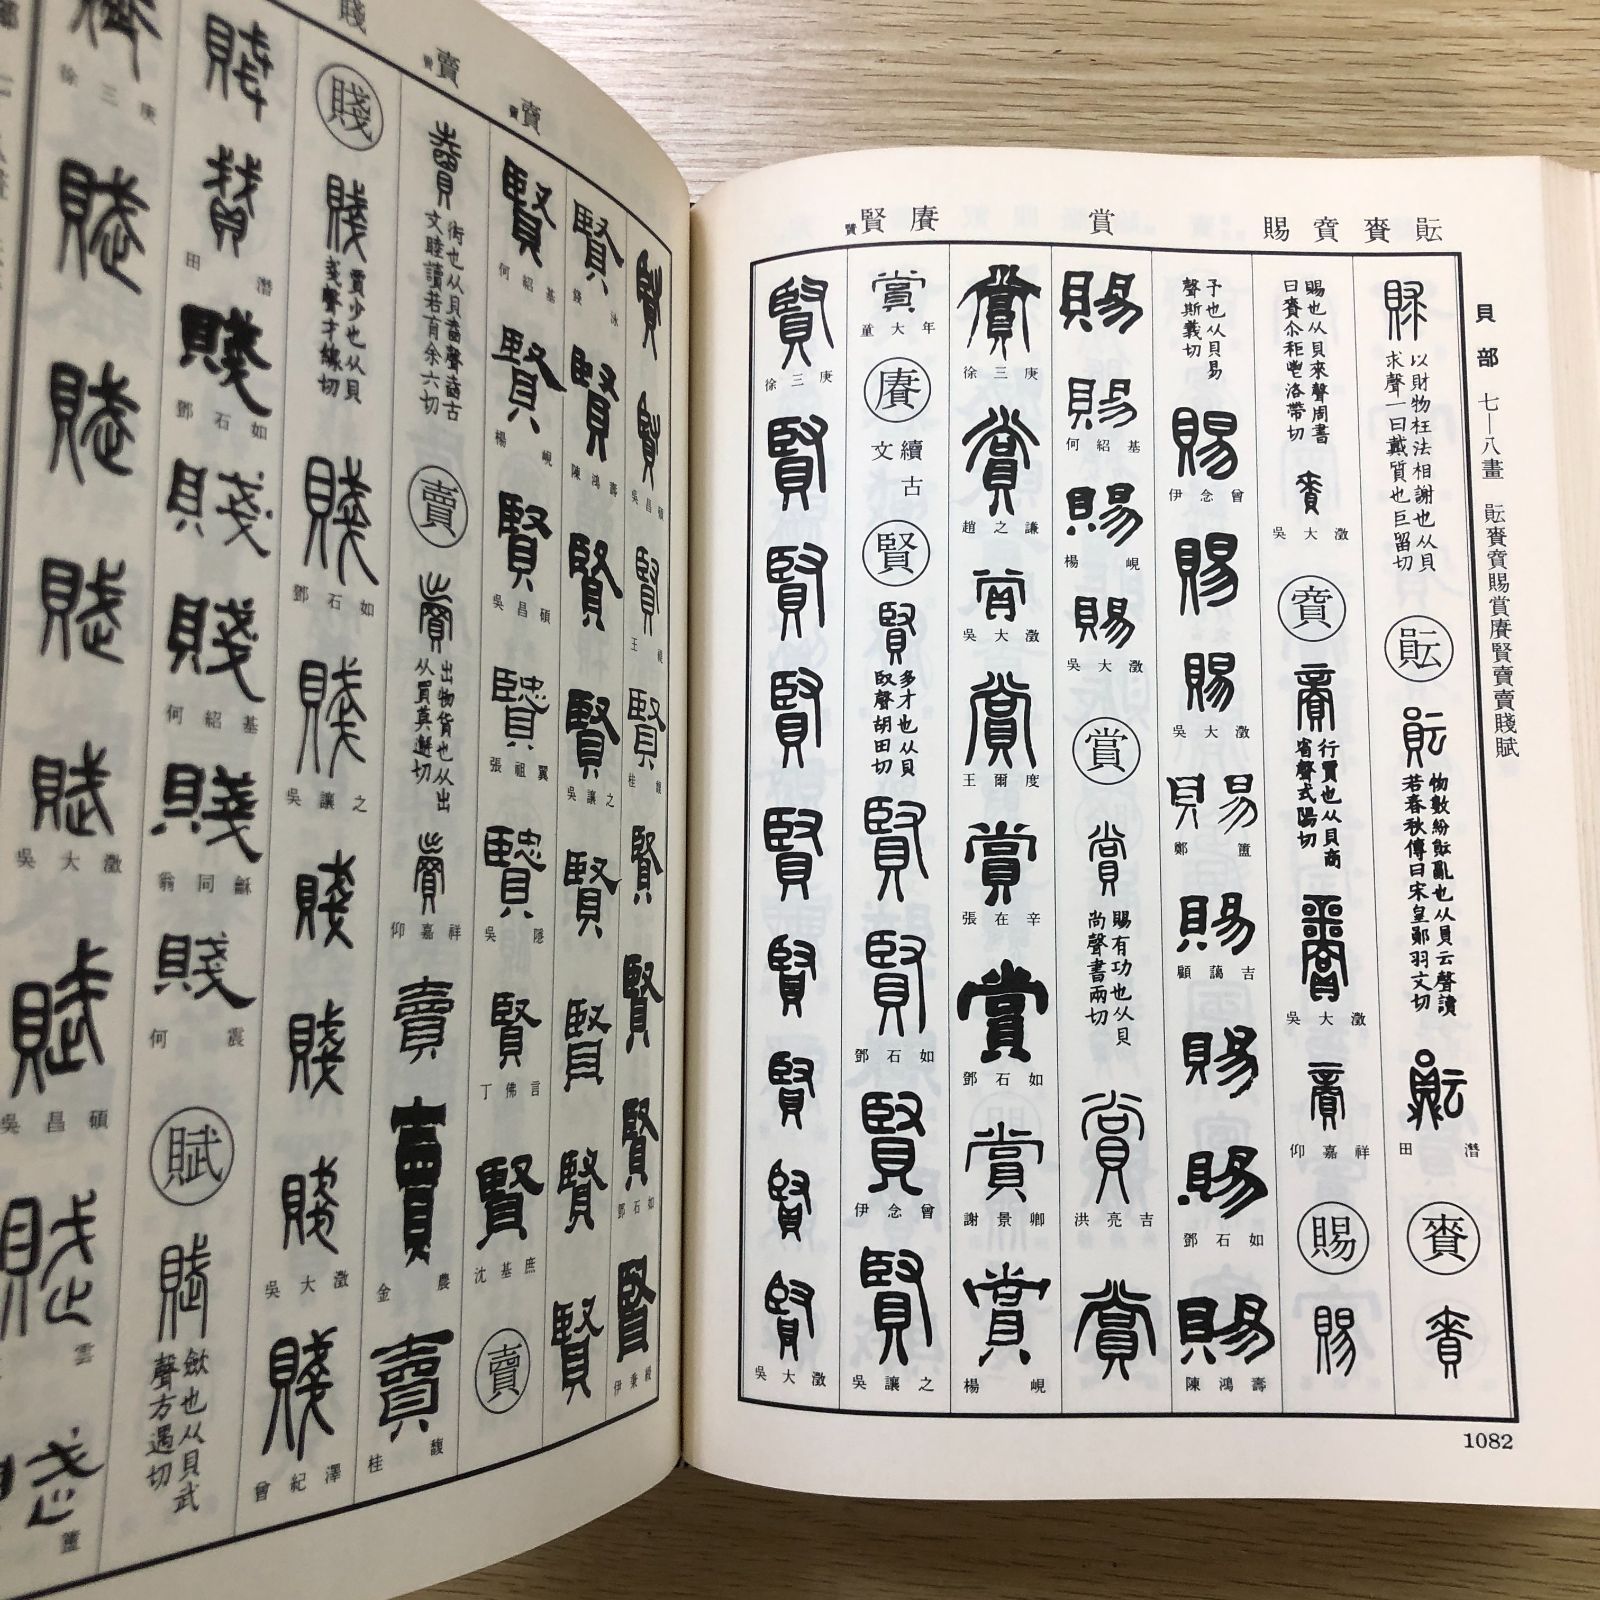 貝部 七—八畫 䝵賚賡賜賞賡賢賣賣賤賦
賜 賚 䝵
賞
賢 賡
賕
以財物枉法相謝也从貝
求聲一曰戴質也巨留切
䝵
物數紛䝵亂也从員云聲讀
若春秋傳曰宋皇鄖羽文切
田潛
賚
賚
賜也从貝來聲周書
曰賚尒秬鬯洛帶切
賚
吳大澂
行賈也从貝商
省聲式陽切
吳大澂
仰嘉祥
賜
賜
予也从貝易
聲斯義切
賜
伊念曾
賜
賜
吳大澂
賜
鄭簠
賜
顧藹吉
賜
賜
鄧石如
賜
陳鴻壽
賜
賜
何紹基
賜
楊峴
賜
吳大澂
賞
賞
賜有功也从貝
尚聲書兩切
賞
洪亮吉
賞
賞
徐三庚
賞
趙之謙
吳大澂
賞
王爾度
賞
張在辛
賞
鄧石如
賞
謝景卿
賞
楊峴
賞
童大年
賡
續古
文
賢
賢
多才也从貝
臤聲胡田切
賢
賢
鄧石如
賢
伊念曾
賢
吳讓之
賢
徐三庚
賢
賢
賢
賢
賢
賢
賢
賢
吳大澂
1082
賤
賣
賣
賢
賢
吳昌碩
賢
王禔
賢
桂馥
賢
賢
賢
鄧石如
賢
伊秉綬
賢
錢泳
賢
陳鴻壽
賢
賢
吳讓之
賢
賢
賢
賢
賢
何紹基
賢
楊峴
賢
吳昌碩
張祖翼
吳隱
賢
丁佛言
賢
沈基庶
賣
衒也从貝𡍬聲𡍬古
文睦讀若育余六切
賣
出物貨也从出
从買莫邂切
仰嘉祥
賣
賣
金農
賣
桂馥
賤
賤
賈少也从貝
戔聲才線切
賤
鄧石如
賤
吳讓之
賤
賤
賤
吳大澂
賤
曾紀澤
賤
田潛
賤
鄧石如
賤
賤
何紹基
賤
翁同龢
賤
何震
賦
賦
斂也从貝武
聲方遇切
徐三庚
賦
賦
賦
賦
吳大澂
賦
吳昌碩